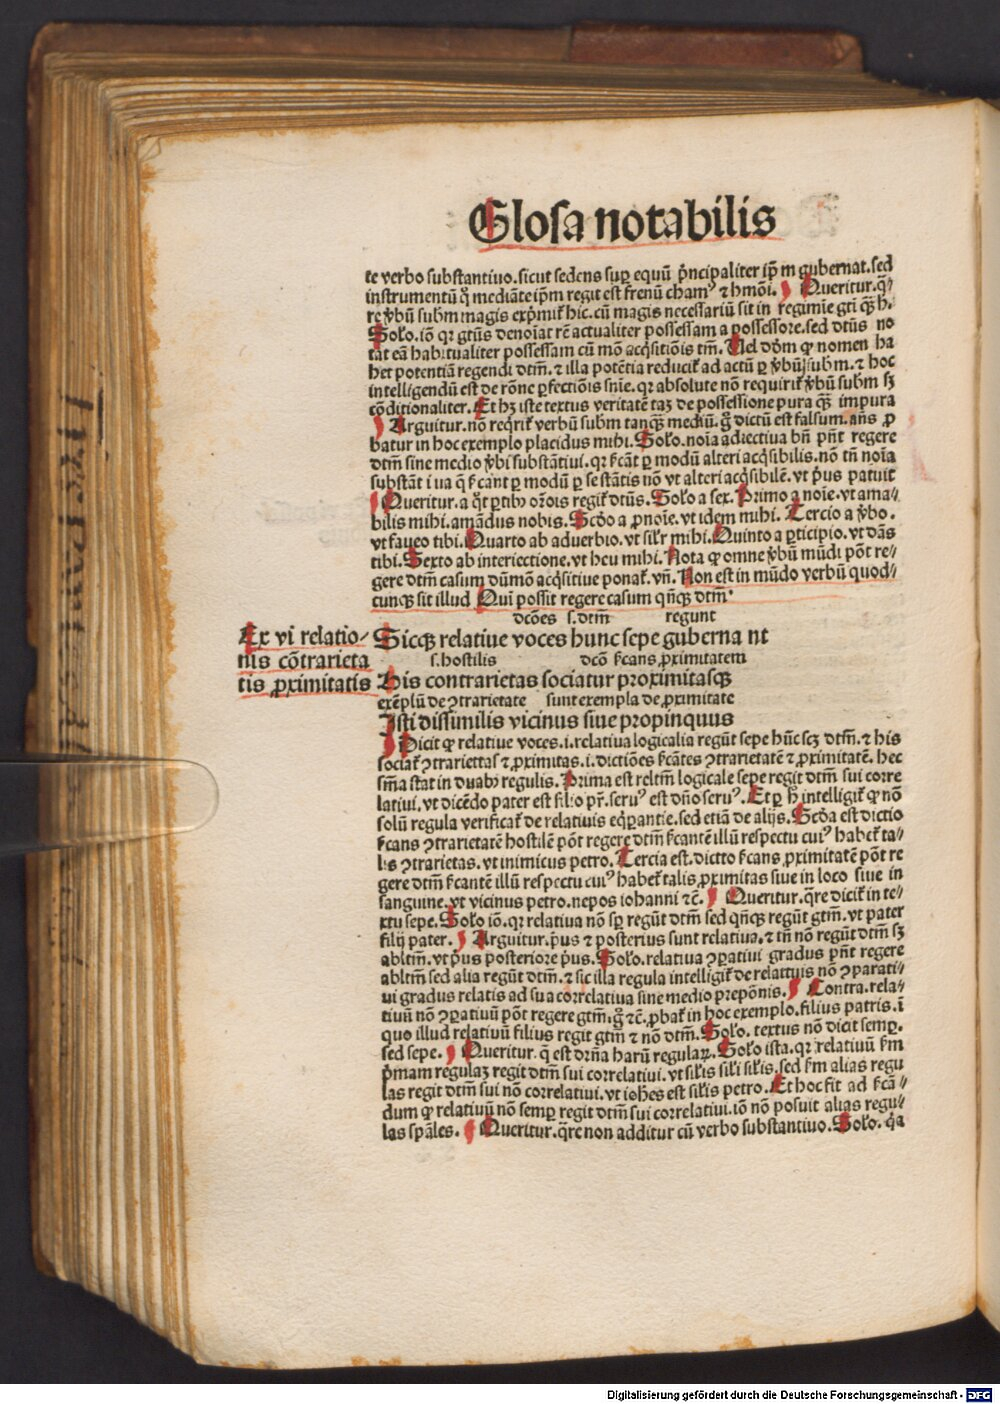 Glosa notabilis
te verbo substantiuo.sicut sedens sup equū p̄ncipaliter ip̄m gubernat.sed
instrumentū qͦ mediāte ip̄m regit est frenū chamꝰ ⁊ hmōi. Queritur.q̄
re v̓bū subm magis exp̄mit̄ hic.cū magis necessariū sit in regimīe gtī qꝫ h.
Solo.iō qꝛ gtūs denoīat rē actualiter possessam a possessore.sed dtūs no
tat eā habitualiter possessam cū mō acq̄sitiōis tm̄. Uel dōm ꝙ nomen ha
bet potentiā regendi dtm̄.⁊ illa potētia reducit̄ ad actū ꝑ v̓bū subm̄.⁊ hoc
intelligendū est de rōne ꝑfectiōis snīe.qꝛ absolute nō requirit̄ v̓bū subm̄ sꝫ
cōditionaliter.Et hꝫ iste textus veritatē taꝫ de possessione pura qꝫ impura
Arguitur.nō reqrit̄ verbū subm tanqꝫ mediū.g̊ dictū est falsum.ans̄ ꝓ
batur in hoc exemplo placidus mihi.Solo.noīa adiectiua bn̄ pn̄t regere
dtm̄ sine medio v̓bi substātiui.qꝛ sc̄ant ꝑ modū alteri acq̄sibilis.nō tn̄ noīa
substāt iua q̄ sc̄ant ꝑ modū ꝑ se stātis nō vt alteri acq̄sibilē.vt p̄us patuit
Queritur.a qͦt ꝑtibꝫ orōis regit̄ dtūs.Solo a sex.Primo a noīe.vt ama⸗
bilis mihi.amādus nobis.Scd̓o a ꝓnoīe.vt idem mihi. Tercio a v̓bo.
vt faueo tibi.Quarto ab aduerbio.vt silr̄ mihi.Quinto a ꝑticipio.vt dās
tibi.Sexto ab interiectione.vt heu mihi.Nota ꝙ omne v̓bū mūdi pōt re⸗
gere dtm̄ casum dūmō acq̄sitiue ponat̄.vn̄.Non est in mūdo verbū quod⸗
cunqꝫ sit illud Qui possit regere casum qn̄qꝫ dtm̄.
dcōes s.dtm̄ regunt
Ex vi relatio⸗
nis cōtrarieta
tis ꝓximitatis
Sicqꝫ relatiue voces hunc sepe guberna nt
s.hostilis dcō sc̄ans ꝓximitatem
His contrarietas sociatur proximitasqꝫ
exēplū de ꝯtrarietate sunt exempla de ꝓximitate
Isti dissimilis vicinus siue propinquus
Dicit ꝙ relatiue voces.i.relatiua logicalia regūt sepe hūc scꝫ dtm̄.⁊ his
sociat̄ ꝯtrarietas ⁊ ꝓximitas.i.dictiōes sc̄ātes ꝯtrarietatē ⁊ ꝓximitatē.Hec
sn̄ia stat in duabꝫ regulis.Prima est reltm̄ logicale sepe regit dtm̄ sui corre
latiui.vt dicēdo pater est filio pr̄.seruꝰ est dn̄o seruꝰ.Et ꝑ h̓ intelligit̄ ꝙ nō
solū regula verificat̄ de relatiuis eq̄ꝑantie.sed etiā de alijs.Scd̓a est dictio
sc̄ans ꝯtrarietatē hostilē pōt regere dtm̄ sc̄antē illū respectu cuiꝰ habet̄ ta⸗
lis ꝯtrarietas.vt inimicus petro. Tercia est.dictio sc̄ans ꝓximitatē pōt re
gere dtm̄ sc̄antē illū respectu cuiꝰ habet̄ talis ꝓximitas siue in loco siue in
sanguine.vt vicinus petro.nepos iohanni ⁊c̄. Queritur.q̄re dicit̄ in te⸗
xtu sepe.Solo iō.qꝛ relatiua nō sꝑ regūt dtm̄ sed qn̄qꝫ regūt gtm̄.vt pater
filij pater. Arguitur.p̄us ⁊ posterius sunt relatiua.⁊ tn̄ nō regūt dtm̄ sꝫ
abltm̄.vt p̄us posteriore p̄us.Solo.relatiua ꝯꝑatiui gradus pn̄t regere
abltm̄ sed alia regūt dtm̄.⁊ sic illa regula intelligit̄ de relatiuis nō ꝯparati⸗
ui gradus relatis ad sua correlatiua sine medio prepōnis. Contra.rela⸗
tiuū nō ꝯꝑatiuū pōt regere gtm̄.g̊ ⁊c̄.ꝓbat̄ in hoc exemplo.filius patris.ī
quo illud relatiuū filius regit gtm̄ ⁊ nō dtm̄.Solo. textus nō dicit semꝑ.
sed sepe. Queritur.q̄ est dr̄na harū regulaꝝ.Solo ista.qꝛ relatiuū sm̄
p̄mam regulaꝫ regit dtm̄ sui correlatiui.vt sil̄is sili sil̄is.sed sm̄ alias regu
las regit dtm̄ sui nō correlatiui.vt iohēs est sil̄is petro.Et hoc fit ad sc̄ā⸗
dum ꝙ relatiuū nō semꝑ regit dtm̄ sui correlatiui.iō nō posuit alias regu⸗
las spāles. Queritur.q̄re non additur cū verbo substantiuo.Solo. q̄a
Digitalisierung gefördert durch die Deutsche Forschungsgemeinschaft - DFG